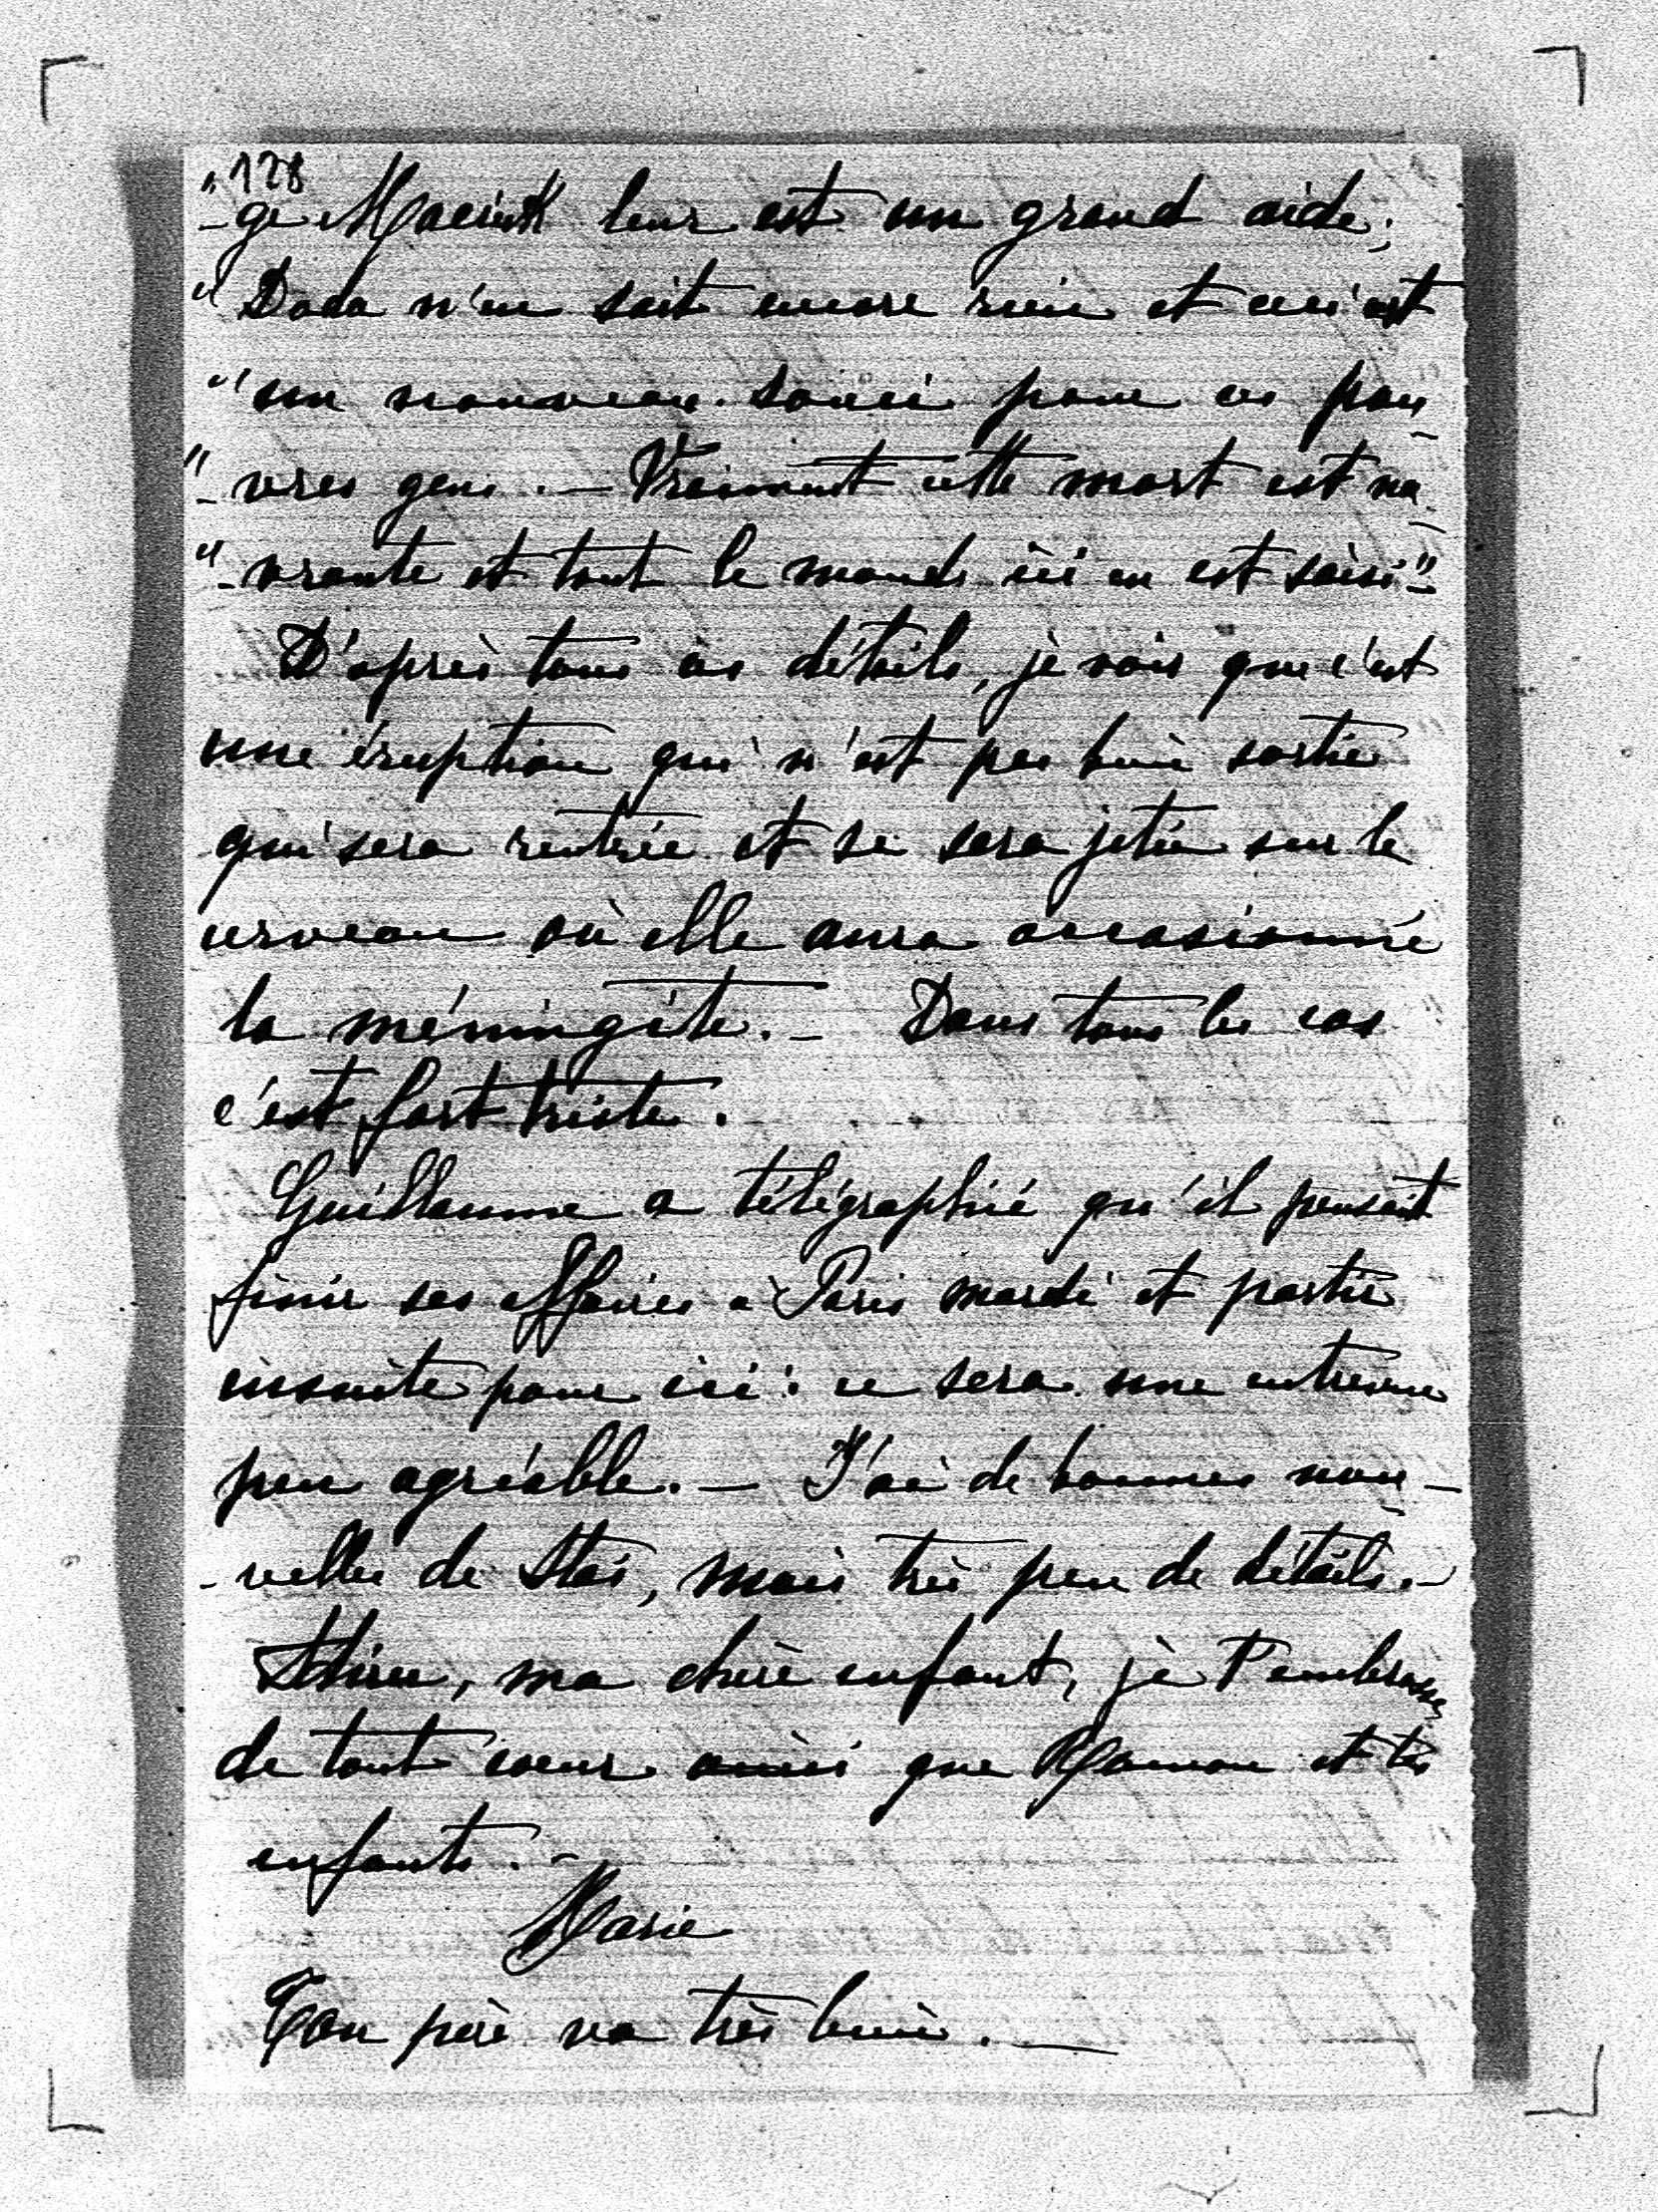 128
"-ge leur est un grand aide;
" Dada n'en sait encore rien et ceci est
" un nouveau souci pour ces pau-
"-vres gens. — Vraiment cette mort est na-
"-vrante et tout le monde ici en est saisi".
D'après tous ces détails, je vois que c'est
une éruption qui n'est pas bien sortie
qui sera rentrée et se sera jetée sur le
cerveau où elle aura occasionné
la méningite. — Dans tous les cas
c'est fort triste.
Guillaume a télégraphié qu'il pensait
finir ses affaires à Paris mardi et partir
ensuite pour ici: ce sera une entrevue
peu agréable. — J'ai de bonnes nou-
-velles de Stas, mais très peu de détails. —
Adieu, ma chère enfant, je t'embrasse
de tout coeur ainsi que et tes
enfants. —
Marie
Ton père va très bien. —